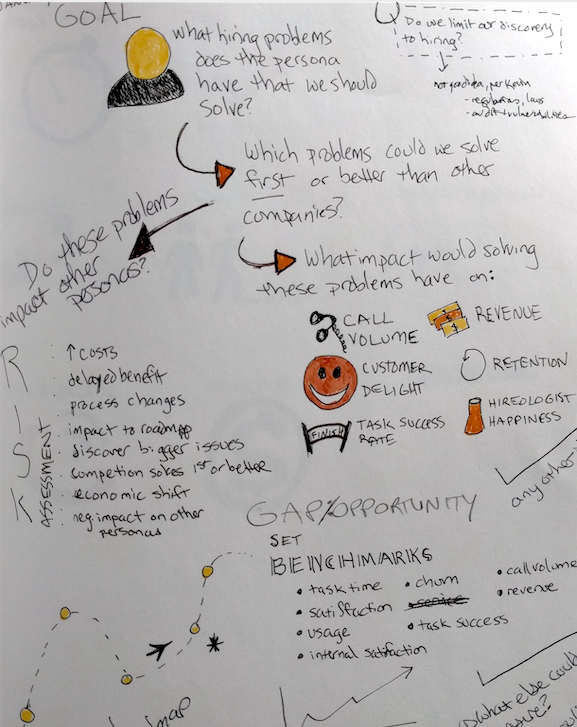 GOAL
what hiring problems
does the persona
have that we should
solve?
Q
Do we limit our discovery
to hiring?
not good idea, per Kevin
- regulations, laws
- audit + vulnerabilities
Which problems could we solve
first or better than other
companies?
Do these problems
impact other
personas?
What impact would solving
these problems have on:
CALL
VOLUME
REVENUE
CUSTOMER
DELIGHT
RETENTION
FINISH
TASK SUCCESS
RATE
HIREOLOGIST
HAPPINESS
RISK
ASSESSMENT
↑ COSTS
delayed benefit
process changes
impact to roadmap
discover bigger issues
competion solves 1st or better
economic shift
neg. impact on other
personas
any other
GAP%OPPORTUNITY
SET
BENCHMARKS
• task time
• satisfaction
• usage
• internal satisfaction
• churn
• service
• task success
• call volume
• revenue
map
what else could